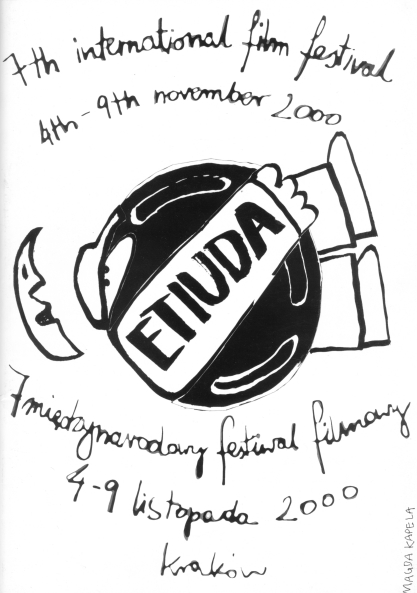 7th international film festival
4th - 9th november 2000
ETIUDA
7 międzynarodowy festiwal filmowy
4 - 9 listopada 2000
Kraków
MAGDA KAPELA